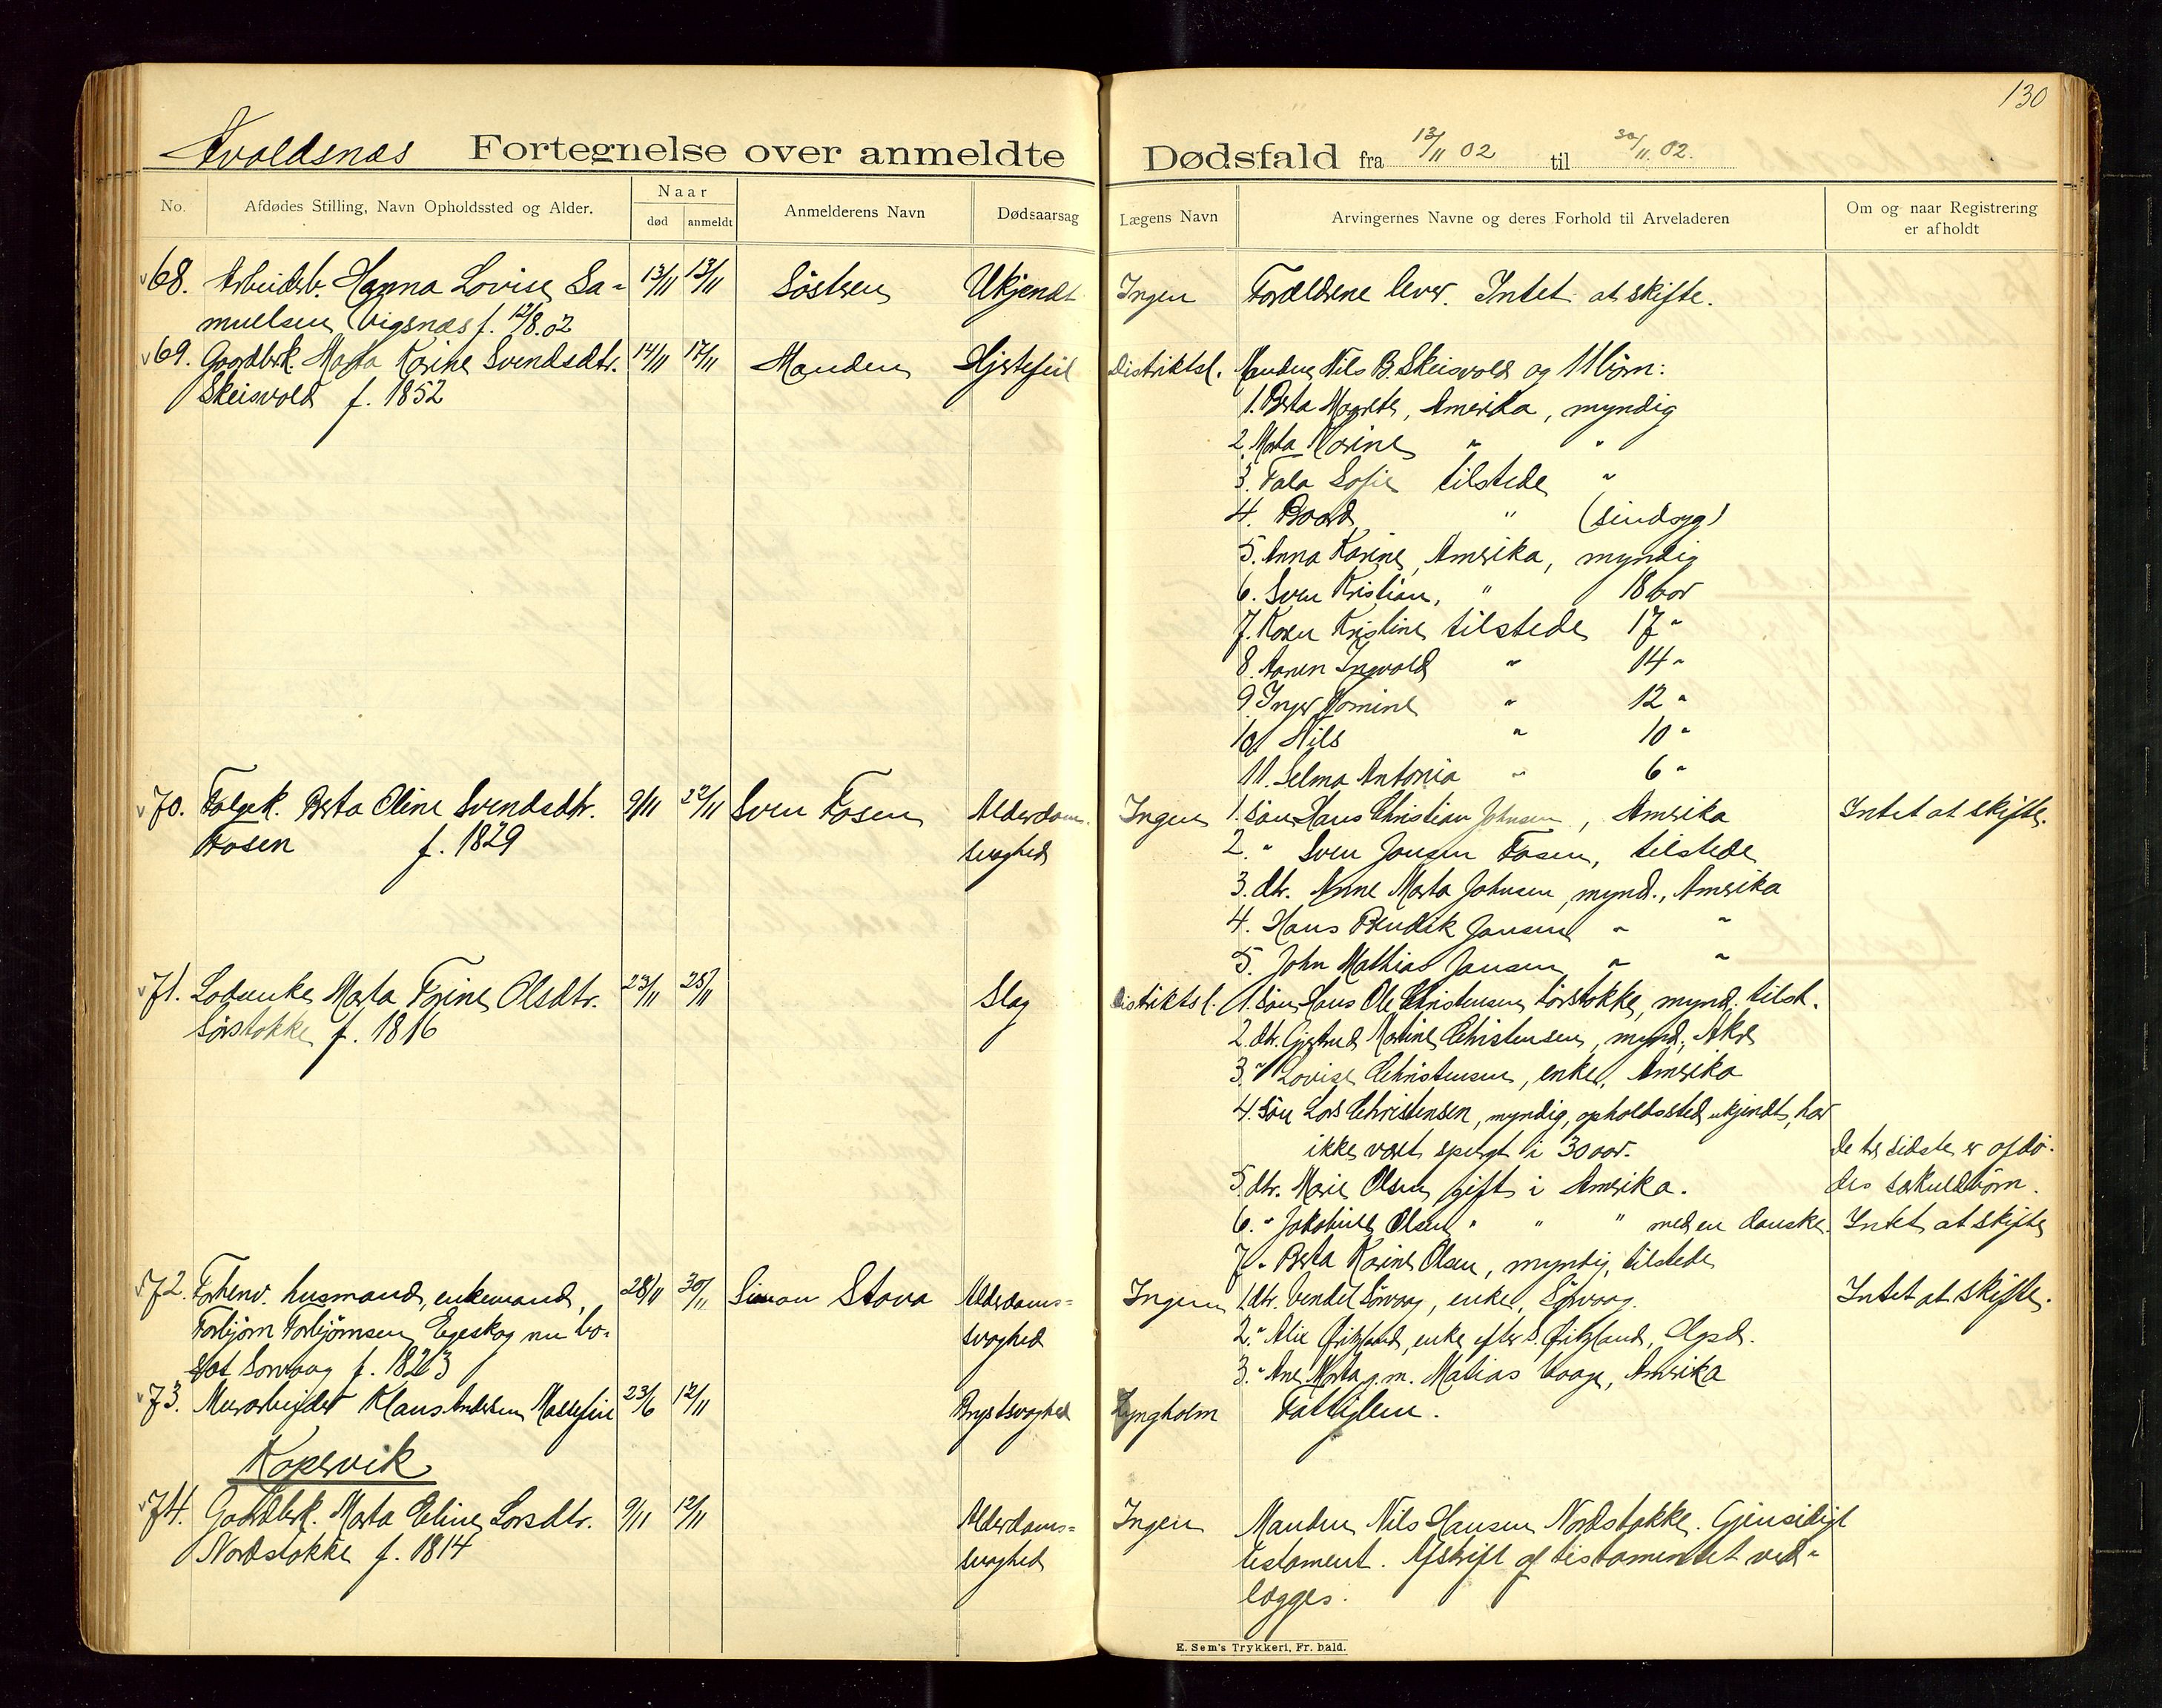 130
Avoldsnæs Fortegnelse over anmeldte Dødsfald fra 13/11 02 til 30/11.02.
No. Afdødes Stilling, Navn Opholdssted og Alder. Naar død anmeldt Anmelderens Navn Dødsaarsag Lægens Navn Arvingernes Navne og deres Forhold til Arveladeren Om og naar Registrering er afholdt
68. Arbeiderb. Hanna Lovise Sa- 13/11 13/11 Søsteren Ukjendt Ingen Forældrene lever. Intet at skifte.
muelsen Vigsnæs f. 12/8.02
69. Gaardbrk. Marta Karine Svendsdtr. 14/11 17/11 Manden Hjertefeil Distriktsl. Manden Nils B. Skeisvold og 11 børn:
Skeisvold f. 1852
1. Berta Margrete, Amerika, myndig
2. Marta Karine " "
3. Tala Sofie tilstede "
4. Baard " (sindsyg)
5. Anna Karine, Amerika, myndig
6. Sven Kristian, " 18 aar
7. Karen Kristine tilstede 17 "
8. Aanen Ingvald " 14 "
9 Inger Tomine " 12 "
10 Nils " 10 "
11. Selma Antonia " 6 "
70. Folgek. Berta Oline Svendsdtr. 9/11 22/11 Sven Fosen Alderdoms- Ingen 1. søn Hans Christian Johnsen, Amerika Intet at skifte.
Fosen f. 1829 svaghed 2. " Sven Jonsen Fosen, tilstede
3. dtr. Anne Marta Johnsen, mynd., Amerika
4. Hans Bendik Jansen " "
5. John Mathias Jansen " "
71. Lodsenke Marta Torine Olsdtr. 23/11 25/11 Slag Distriktsl. 1. søn Hans Ole Christensen Sørstokke, mynd. tilst.
Sørstokke f. 1816 2. dtr. Gjertrud Martine Christensen, mynd., Akre
3. " Lovise Christensen, enke, Amerika
4. søn Lars Christensen, myndig, opholdssted ukjendt, har
ikke været spurgt i 30 aar. De tre sidste er afdø-
5. dtr. Marie Olsen gift i Amerika. des særkuldbørn.
6. " Jakobine Olsen " " " med en danske. Intet at skifte
7. " Berta Karine Olsen, myndig, tilstede
72. Forhenv. husmand, enkemand, 28/11 30/11 Simon Stava Alderdoms- Ingen 1. dtr. Vendel Sørvaag, enke, Sørvaag. Intet at skifte.
Torbjørn Torbjørnsen Egeskog nu bo- svaghed 2. " Alie Fitzland, enke efter S. Fitzland, Egsd.
sat Sørvaag f. 1823 3. " Ane Marta g. m. Matias Vaage, Amerika
73. Murarbejder Klaus Andersen 23/6 12/11 Brystsvaghed Lyngholm Fattiglem.
Kopervik
74. Gaardbrk. Marta Eline Larsdtr. 9/11 12/11 Alderdoms- Ingen Manden Nils Hansen Nordstokke. Gjensidigt
Nordstokke f. 1814 svaghed testament. Afskrift af testamentet ved-
lægges.
E. Sem's Trykkeri, Fr. hald.